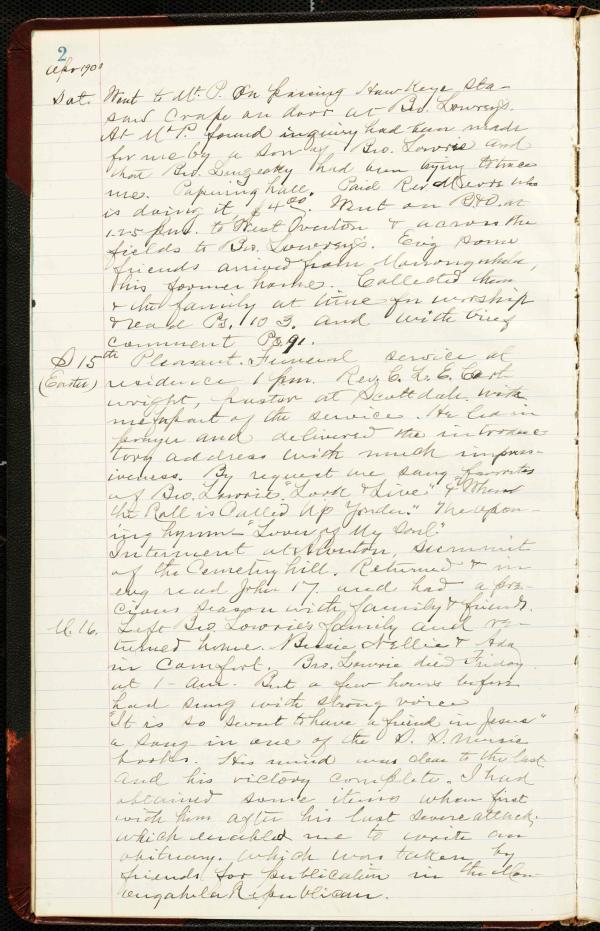 2
Apr 1900
Sat. Went to Mt. P. On passing Hawkeye Sta-
saw crape on door at Bro. Lowrey's.
At Mt P. found inquiry had been made
for me by a son of Bro. Lowrie and
that Bro. had been trying to trace
me. Papering hall. Paid Rev. who
is doing it, $4.00. Went on B&O. at
1-25 p.m. to West Overton & across the
fields to Bro. Lowrey's. Evg some
friends arrived from Monongahela,
his former home. Collected them
& the family at nine for worship
& read Ps. 103. and with brief
comment Ps. 91.
S 15th Pleasant. Funeral service at
(Easter) residence 1 pm. Rev. C. L. E. Cart-
wright, pastor at Scottdale with
me part of the service. He led in
prayer and delivered the introduc-
tory address with much impres-
iveness. By request we sang favorites
of Bro. Lowrie "Look & Live" & "When
the Roll is Called Up Yonder." The open-
ing hymn - "Lover of My Soul"
Interment at Alverton, summit
of the Cemetery hill. Returned & in
evg read John 17. and had a pre-
cious season with family & friends.
M. 16. Left Bro. Lowrie's family and re-
turned home. Nellie & Ada
in comfort. Bro. Lowrie died Friday
at 1- am. But a few hours before
had sung with strong voice
"It is so sweet to have a friend in Jesus"
a song in one of the S. S. music
books. His mind was clear to the last
and his victory complete. I had
obtained some items when first
with him after his last severe attack,
which enabled me to write an
obituary. which was taken by
friends for publication in the Mon-
ongahela Republican.